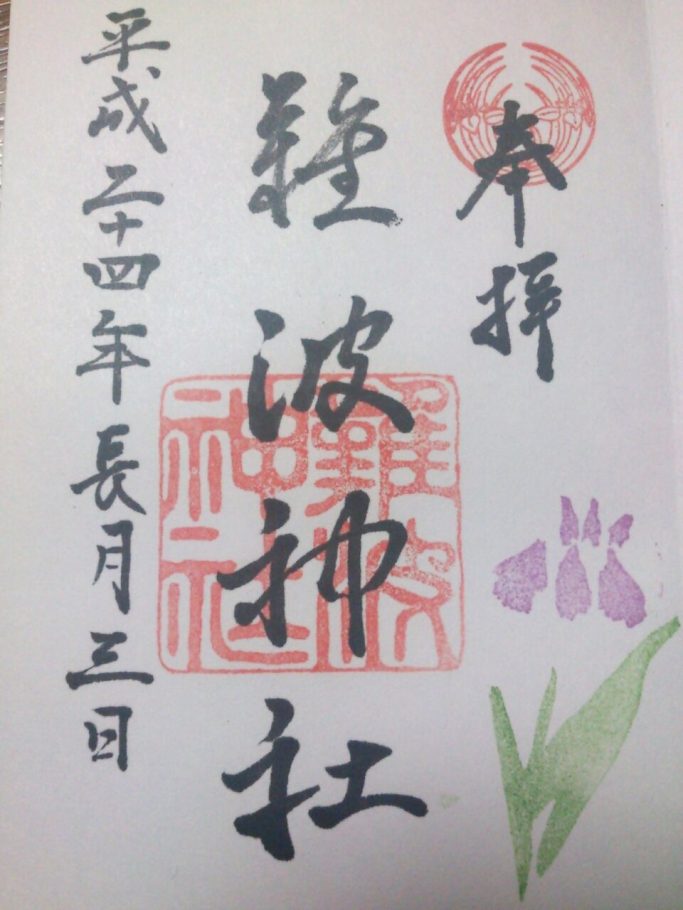 奉拝
難波神社
難波神社
平成二十四年長月三日